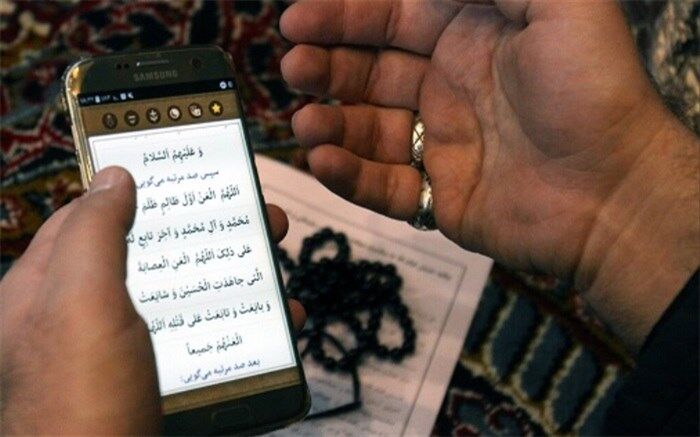 SAMSUNG
وَ عَلَیْهِمُ اَلسَّلامُ
سپس صد مرتبه می‌گویی:
اَللّهُمَّ الْعَنْ اَوَّلَ ظالِمٍ ظَلَمَ
مُحَمَّدٍ وَ آلِ مُحَمَّدٍ وَ آخِرَ تابِعٍ لَهُ
عَلی ذلِکَ اَللّهُمَّ الْعَنِ الْعِصابَةَ
الَّتی جاهَدَتِ الْحُسَیْنَ وَ شایَعَتْ
وَ بایَعَتْ وَ تابَعَتْ عَلی قَتْلِهِ اَللّهُمَّ
الْعَنْهُمْ جَمیعاً
بعد صد مرتبه می‌گویی: